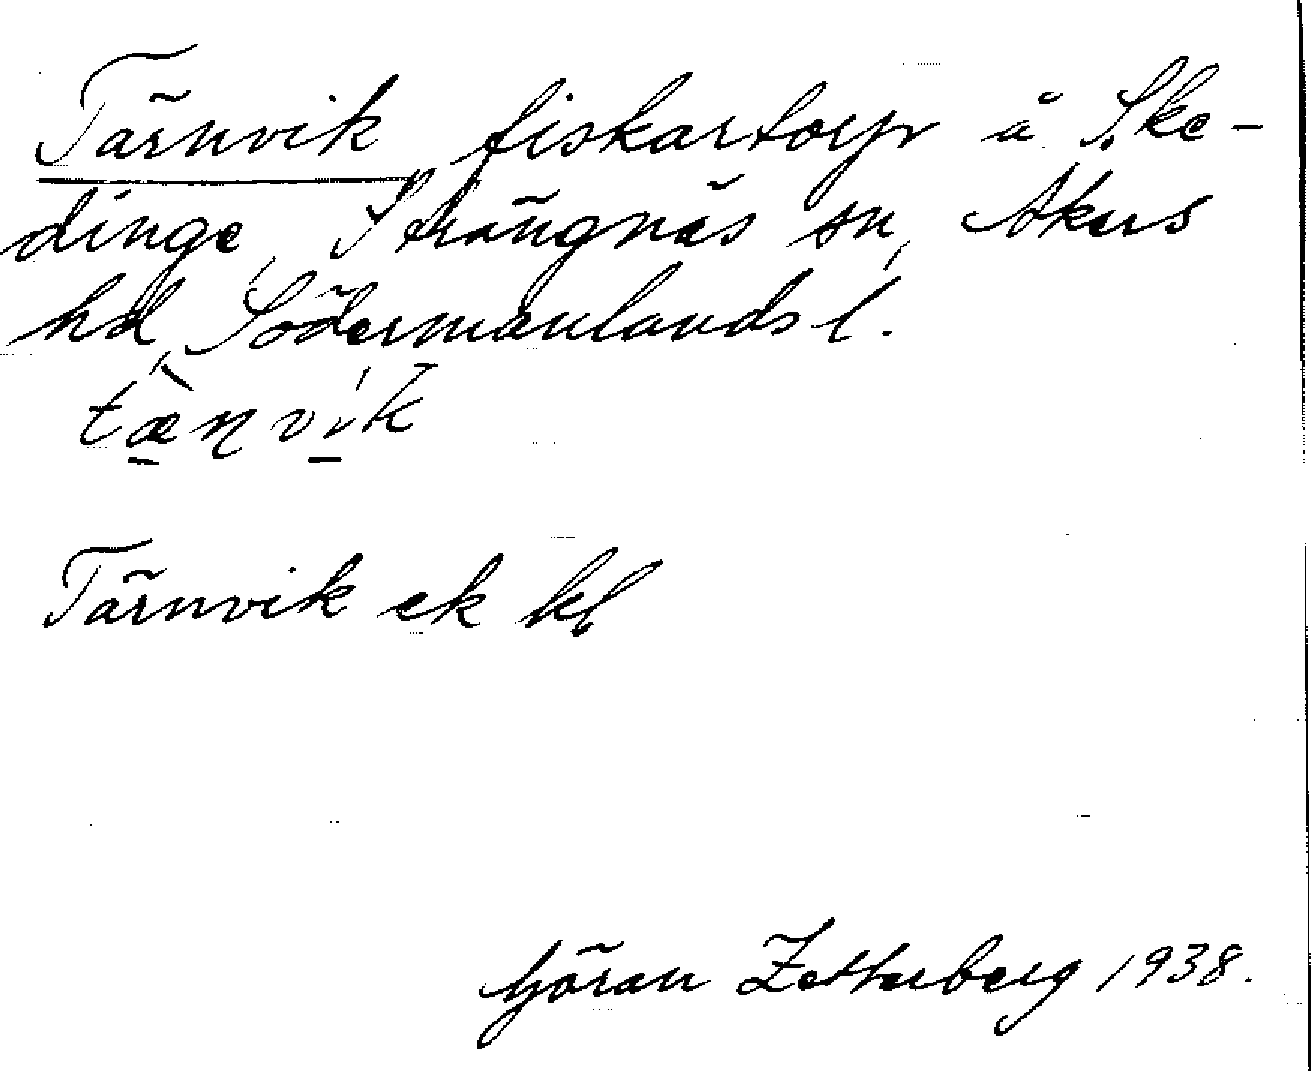 Tärnvik fiskartorp å Ske-
dinge, Strängnäs sn, Åkers
hd, Södermanlands l.
tæ̀ṇvík
Tärnvik ek kl
Göran Zetterberg 1938.